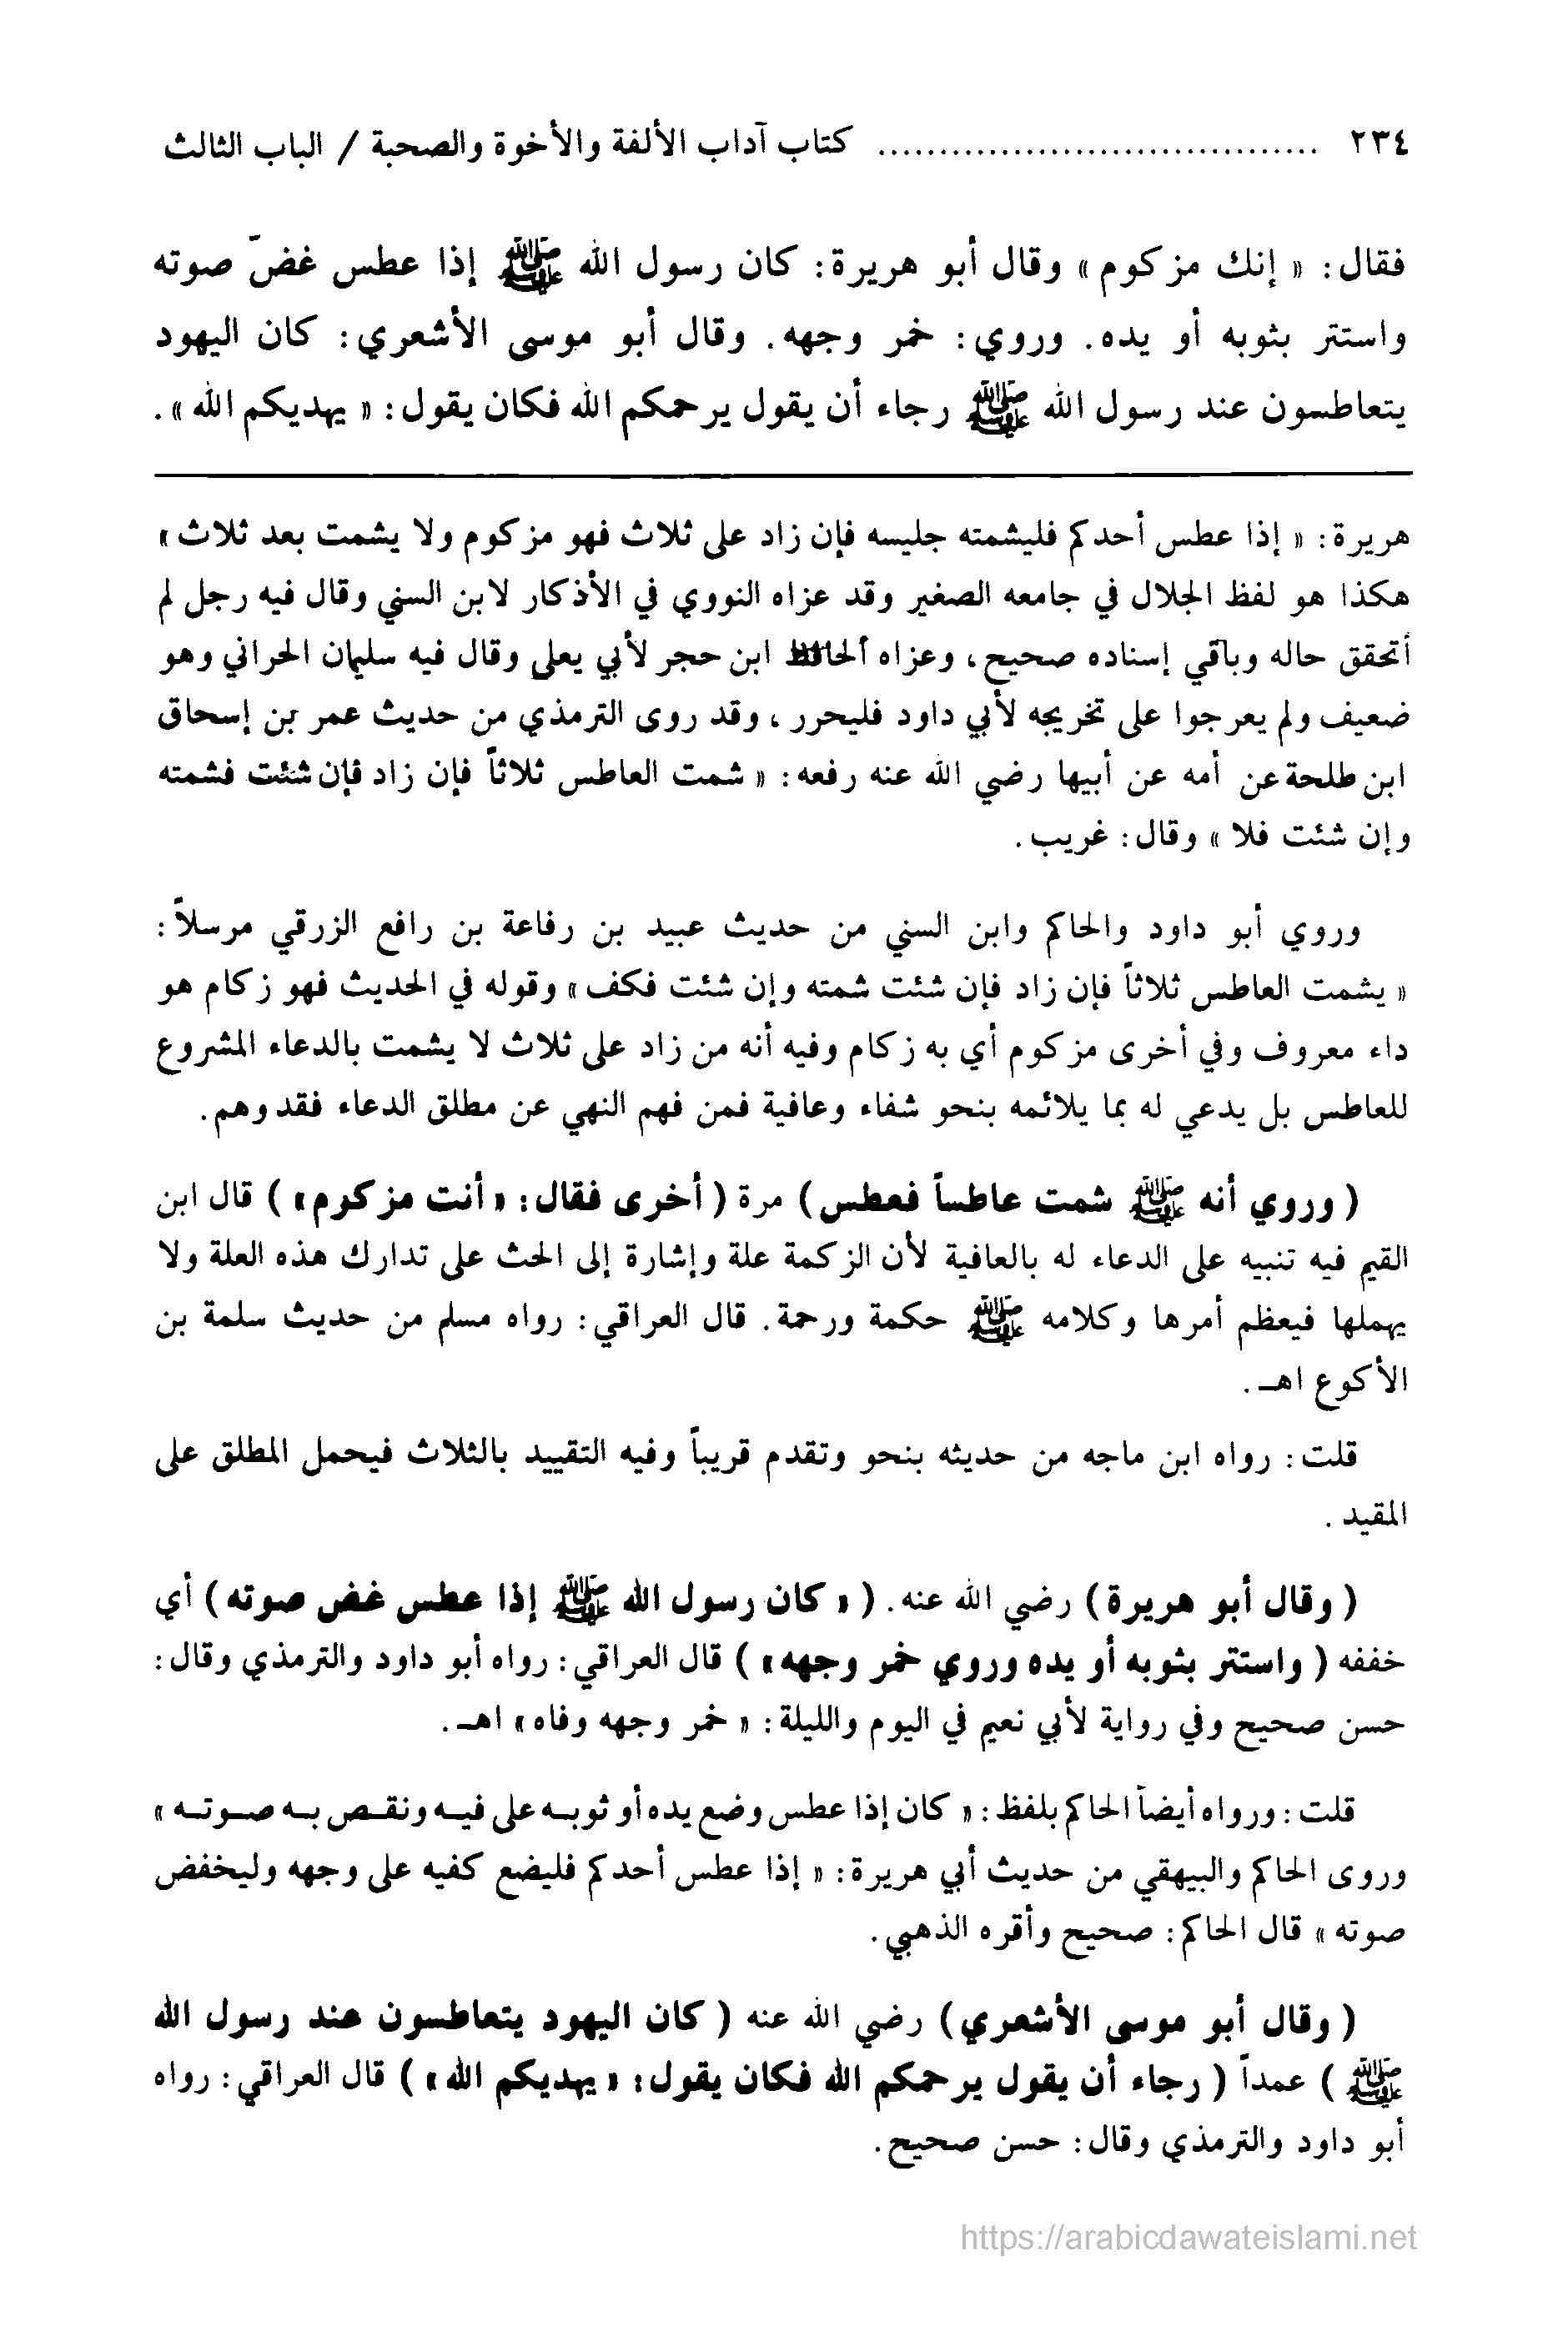 ٢٣٤ .................................... كتاب آداب الألفة والأخوة والصحبة / الباب الثالث
فقال: « إنك مزكوم » وقال أبو هريرة: كان رسول الله ﷺ إذا عطس غضّ صوته
واستتر بثوبه أو يده. وروي: خمر وجهه. وقال أبو موسى الأشعري: كان اليهود
يتعاطسون عند رسول الله ﷺ رجاء أن يقول يرحمكم الله فكان يقول: « يهديكم الله ».
هريرة: « إذا عطس أحدكم فليشمته جليسه فإن زاد على ثلاث فهو مزكوم ولا يشمت بعد ثلاث »
هكذا هو لفظ الجلال في جامعه الصغير وقد عزاه النووي في الأذكار لابن السني وقال فيه رجل لم
أتحقق حاله وباقي إسناده صحيح، وعزاه الحافظ ابن حجر لأبي يعلى وقال فيه سليمان الحراني وهو
ضعيف ولم يعرجوا على تخريجه لأبي داود فليحرر، وقد روى الترمذي من حديث عمر بن إسحاق
ابن طلحة عن أمه عن أبيها رضي الله عنه رفعه: « شمت العاطس ثلاثاً فإن زاد فإن شئت فشمته
وإن شئت فلا » وقال: غريب.
وروي أبو داود والحاكم وابن السني من حديث عبيد بن رفاعة بن رافع الزرقي مرسلاً:
« يشمت العاطس ثلاثاً فإن زاد فإن شئت شمته وإن شئت فكف » وقوله في الحديث فهو زكام هو
داء معروف وفي أخرى مزكوم أي به زكام وفيه أنه من زاد على ثلاث لا يشمت بالدعاء المشروع
للعاطس بل يدعي له بما يلائمه بنحو شفاء وعافية فمن فهم النهي عن مطلق الدعاء فقد وهم.
( وروي أنه ﷺ شمت عاطساً فعطس ) مرة ( أخرى فقال: « أنت مزكوم » ) قال ابن
القيم فيه تنبيه على الدعاء له بالعافية لأن الزكمة علة وإشارة إلى الحث على تدارك هذه العلة ولا
يهملها فيعظم أمرها وكلامه ﷺ حكمة ورحمة. قال العراقي: رواه مسلم من حديث سلمة بن
الأكوع اهـ.
قلت: رواه ابن ماجه من حديثه بنحو وتقدم قريباً وفيه التقييد بالثلاث فيحمل المطلق على
المقيد.
( وقال أبو هريرة ) رضي الله عنه. ( « كان رسول الله ﷺ إذا عطس غض صوته ) أي
خففه ( واستتر بثوبه أو يده وروي خمر وجهه » ) قال العراقي: رواه أبو داود والترمذي وقال:
حسن صحيح وفي رواية لأبي نعيم في اليوم والليلة: « خمر وجهه وفاه » اهـ.
قلت: ورواه أيضاً الحاكم بلفظ: « كان إذا عطس وضع يده أو ثوبه على فيه ونقص به صوته »
وروى الحاكم والبيهقي من حديث أبي هريرة: « إذا عطس أحدكم فليضع كفيه على وجهه وليخفض
صوته » قال الحاكم: صحيح وأقره الذهبي.
( وقال أبو موسى الأشعري ) رضي الله عنه ( كان اليهود يتعاطسون عند رسول الله
ﷺ ) عمداً ( رجاء أن يقول يرحمكم الله فكان يقول: « يهديكم الله » ) قال العراقي: رواه
أبو داود والترمذي وقال: حسن صحيح.
https://arabicdawateislami.net